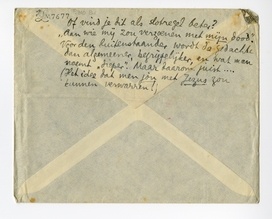 Of vind je dit als slotregel beter?
Aan wie mij zou vereenen met mijn dood?
Voor den buitenstaander wordt de gedachte
dan algemeener, begrijpelijker, en wat men
noemt "dieper". Maar daarom juist ....
(Het idee dat men jou met Jezus zou
kunnen verwarren!)